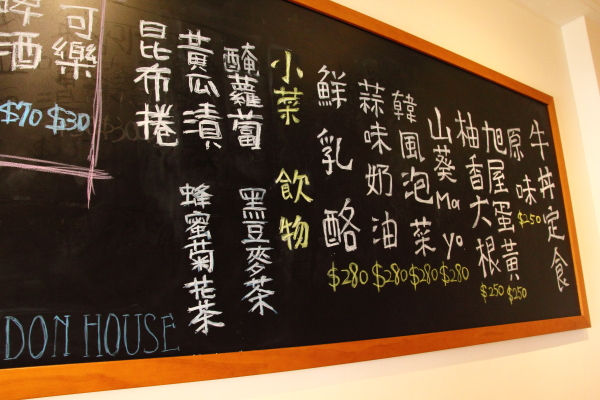 牛丼定食
原味 $250
旭屋蛋黃 $250
柚香大根 $250
山葵Mayo $280
韓風泡菜 $280
蒜味奶油 $280
鮮乳酪 $280
小菜 飲物
醃蘿蔔 黑豆麥茶
黃瓜漬 蜂蜜菊花茶
昆布捲
可樂 $30
啤酒 $70
DON HOUSE